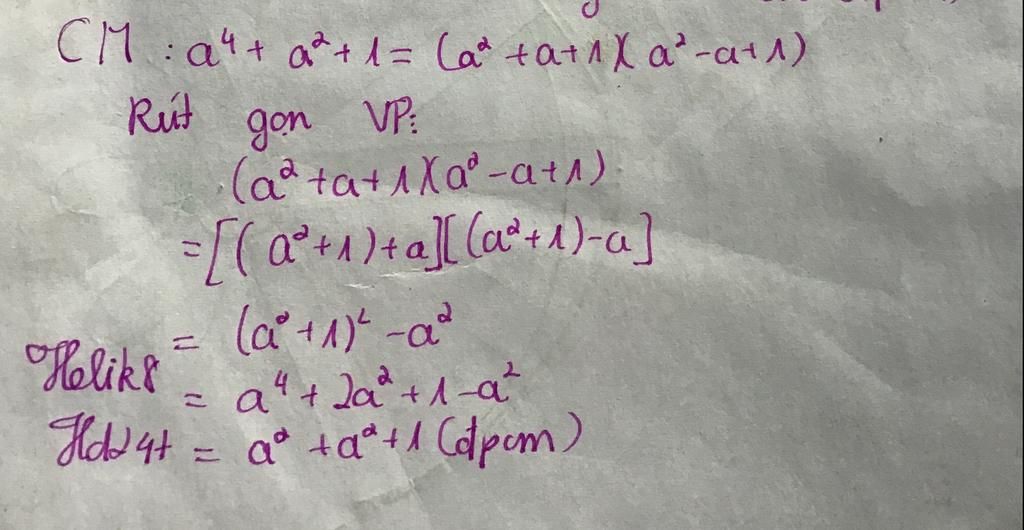 CM : a⁴ + a² + 1 = (a² + a + 1)(a² - a + 1)
Rút gọn VP:
(a² + a + 1)(a² - a + 1)
= [(a² + 1) + a][(a² + 1) - a]
= (a² + 1)² - a²
Helik8
= a⁴ + 2a² + 1 - a²
= a² + a² + 1 (đpcm)